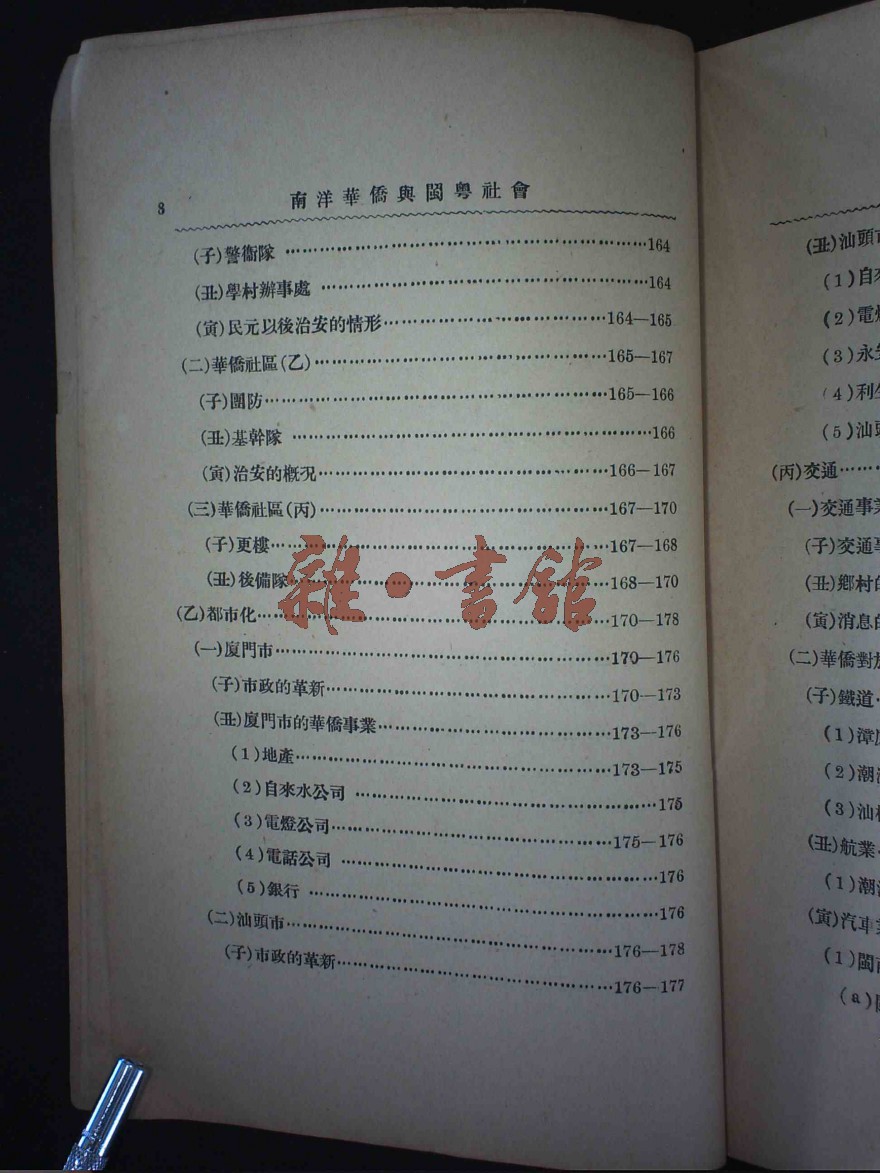 8 南洋華僑與閩粤社會
(子)警衞隊 ……164
(丑)學村辦事處 ……164
(寅)民元以後治安的情形……164—165
(二)華僑社區(乙)……165—167
(子)團防……165—166
(丑)基幹隊 ……166
(寅)治安的概况……166—167
(三)華僑社區(丙)……167—170
(子)更樓……167—168
(丑)後備隊……168—170
雜·書館
(乙)都市化……170—178
(一)廈門市……170—176
(子)市政的革新……170—173
(丑)廈門市的華僑事業……173—176
(1)地產……173—175
(2)自來水公司 ……175
(3)電燈公司……175—176
(4)電話公司 ……176
(5)銀行 ……176
(二)汕頭市……176—178
(子)市政的革新……176—177
(丑)汕頭
(1)自
(2)電
(3)永
(4)利
(5)汕
(丙)交通……
(一)交通事
(子)交通
(丑)鄉村
(寅)消息
(二)華僑對
(子)鐵道
(1)漳
(2)潮
(3)汕
(丑)航業
(1)潮
(寅)汽車
(1)閩
(a)